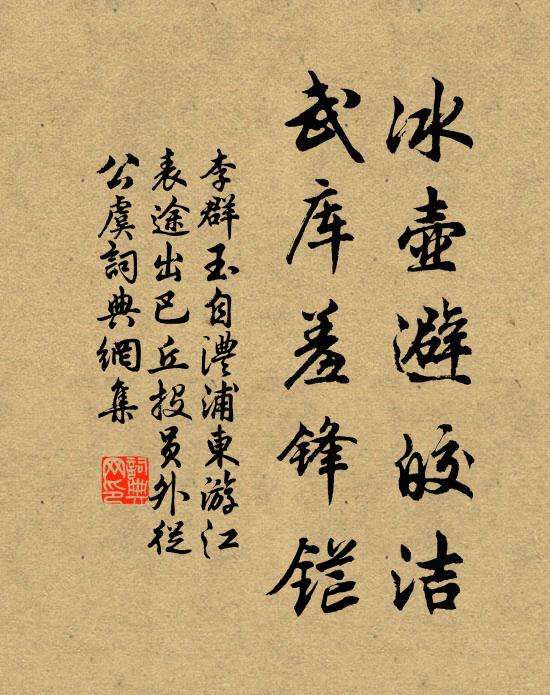 冰壺避皎洁
武库羞锋铓
李群玉自澧浦東游江
表途出巴丘投员外從
公虞詞典網集
詞典
网印